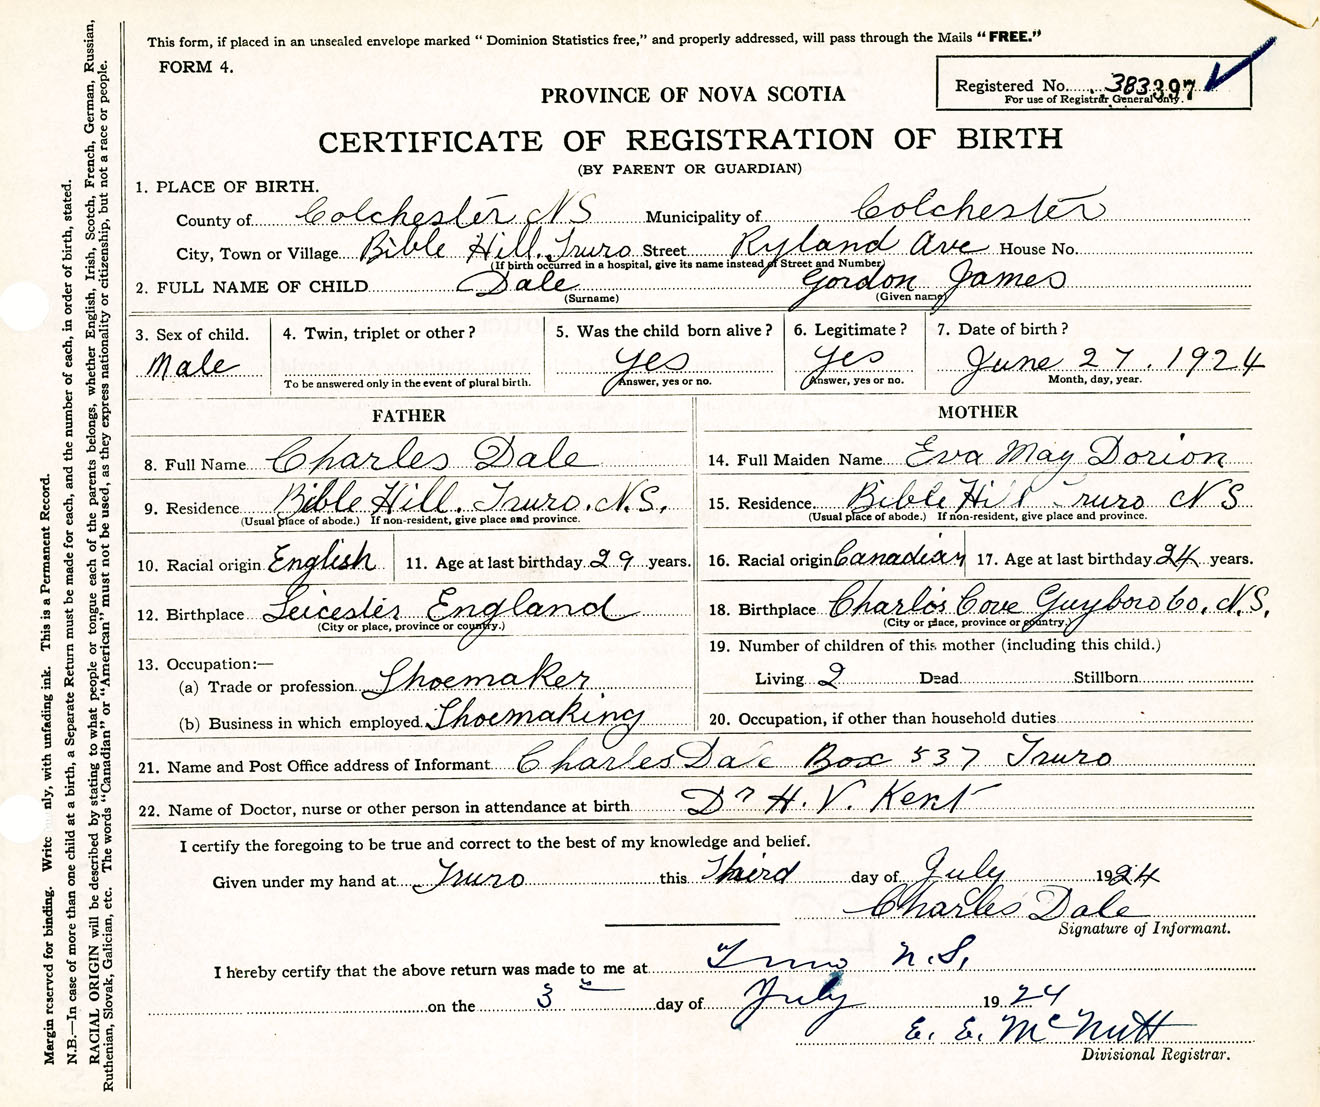 This form, if placed in an unsealed envelope marked " Dominion Statistics free," and properly addressed, will pass through the Mails "FREE."
FORM 4.
Registered No. 383397
For use of Registrar General only.
PROVINCE OF NOVA SCOTIA
CERTIFICATE OF REGISTRATION OF BIRTH
(BY PARENT OR GUARDIAN)
1. PLACE OF BIRTH.
County of Colchester NS Municipality of Colchester
City, Town or Village Bible Hill. Truro Street Ryland Ave House No.
(If birth occurred in a hospital, give its name instead of Street and Number)
2. FULL NAME OF CHILD Dale Gordon James
(Surname) (Given name)
3. Sex of child. 4. Twin, triplet or other? 5. Was the child born alive? 6. Legitimate? 7. Date of birth?
Male yes yes June 27. 1924
To be answered only in the event of plural birth. Answer, yes or no. Answer, yes or no. Month, day, year.
FATHER MOTHER
8. Full Name Charles Dale 14. Full Maiden Name Eva May Dorion
9. Residence Bible Hill. Truro. N.S. 15. Residence Bible Hill Truro NS
(Usual place of abode.) If non-resident, give place and province. (Usual place of abode.) If non-resident, give place and province.
10. Racial origin English 11. Age at last birthday 29 years. 16. Racial origin Canadian 17. Age at last birthday 24 years.
12. Birthplace Leicester England 18. Birthplace Charlos Cove Guyboro Co. N.S.
(City or place, province or country.) (City or place, province or country.)
13. Occupation:— 19. Number of children of this mother (including this child.)
(a) Trade or profession Shoemaker Living 2 Dead Stillborn
(b) Business in which employed Shoemaking 20. Occupation, if other than household duties
21. Name and Post Office address of Informant Charles Dale Box 537 Truro
22. Name of Doctor, nurse or other person in attendance at birth Dr H. V. Kent
I certify the foregoing to be true and correct to the best of my knowledge and belief.
Given under my hand at Truro this Third day of July 1924
Charles Dale
Signature of Informant.
I hereby certify that the above return was made to me at Truro N.S.
on the 3rd day of July 1924
E. E. McNutt
Divisional Registrar.
Margin reserved for binding. Write nly, with unfading ink. This is a Permanent Record.
N.B.—In case of more than one child at a birth, a Separate Return must be made for each, and the number of each, in order of birth, stated.
RACIAL ORIGIN will be described by stating to what people or tongue each of the parents belongs, whether English, Irish, Scotch, French, German, Russian,
Ruthenian, Slovak, Galician, etc. The words "Canadian" or "American" must not be used, as they express nationality or citizenship, but not a race or people.